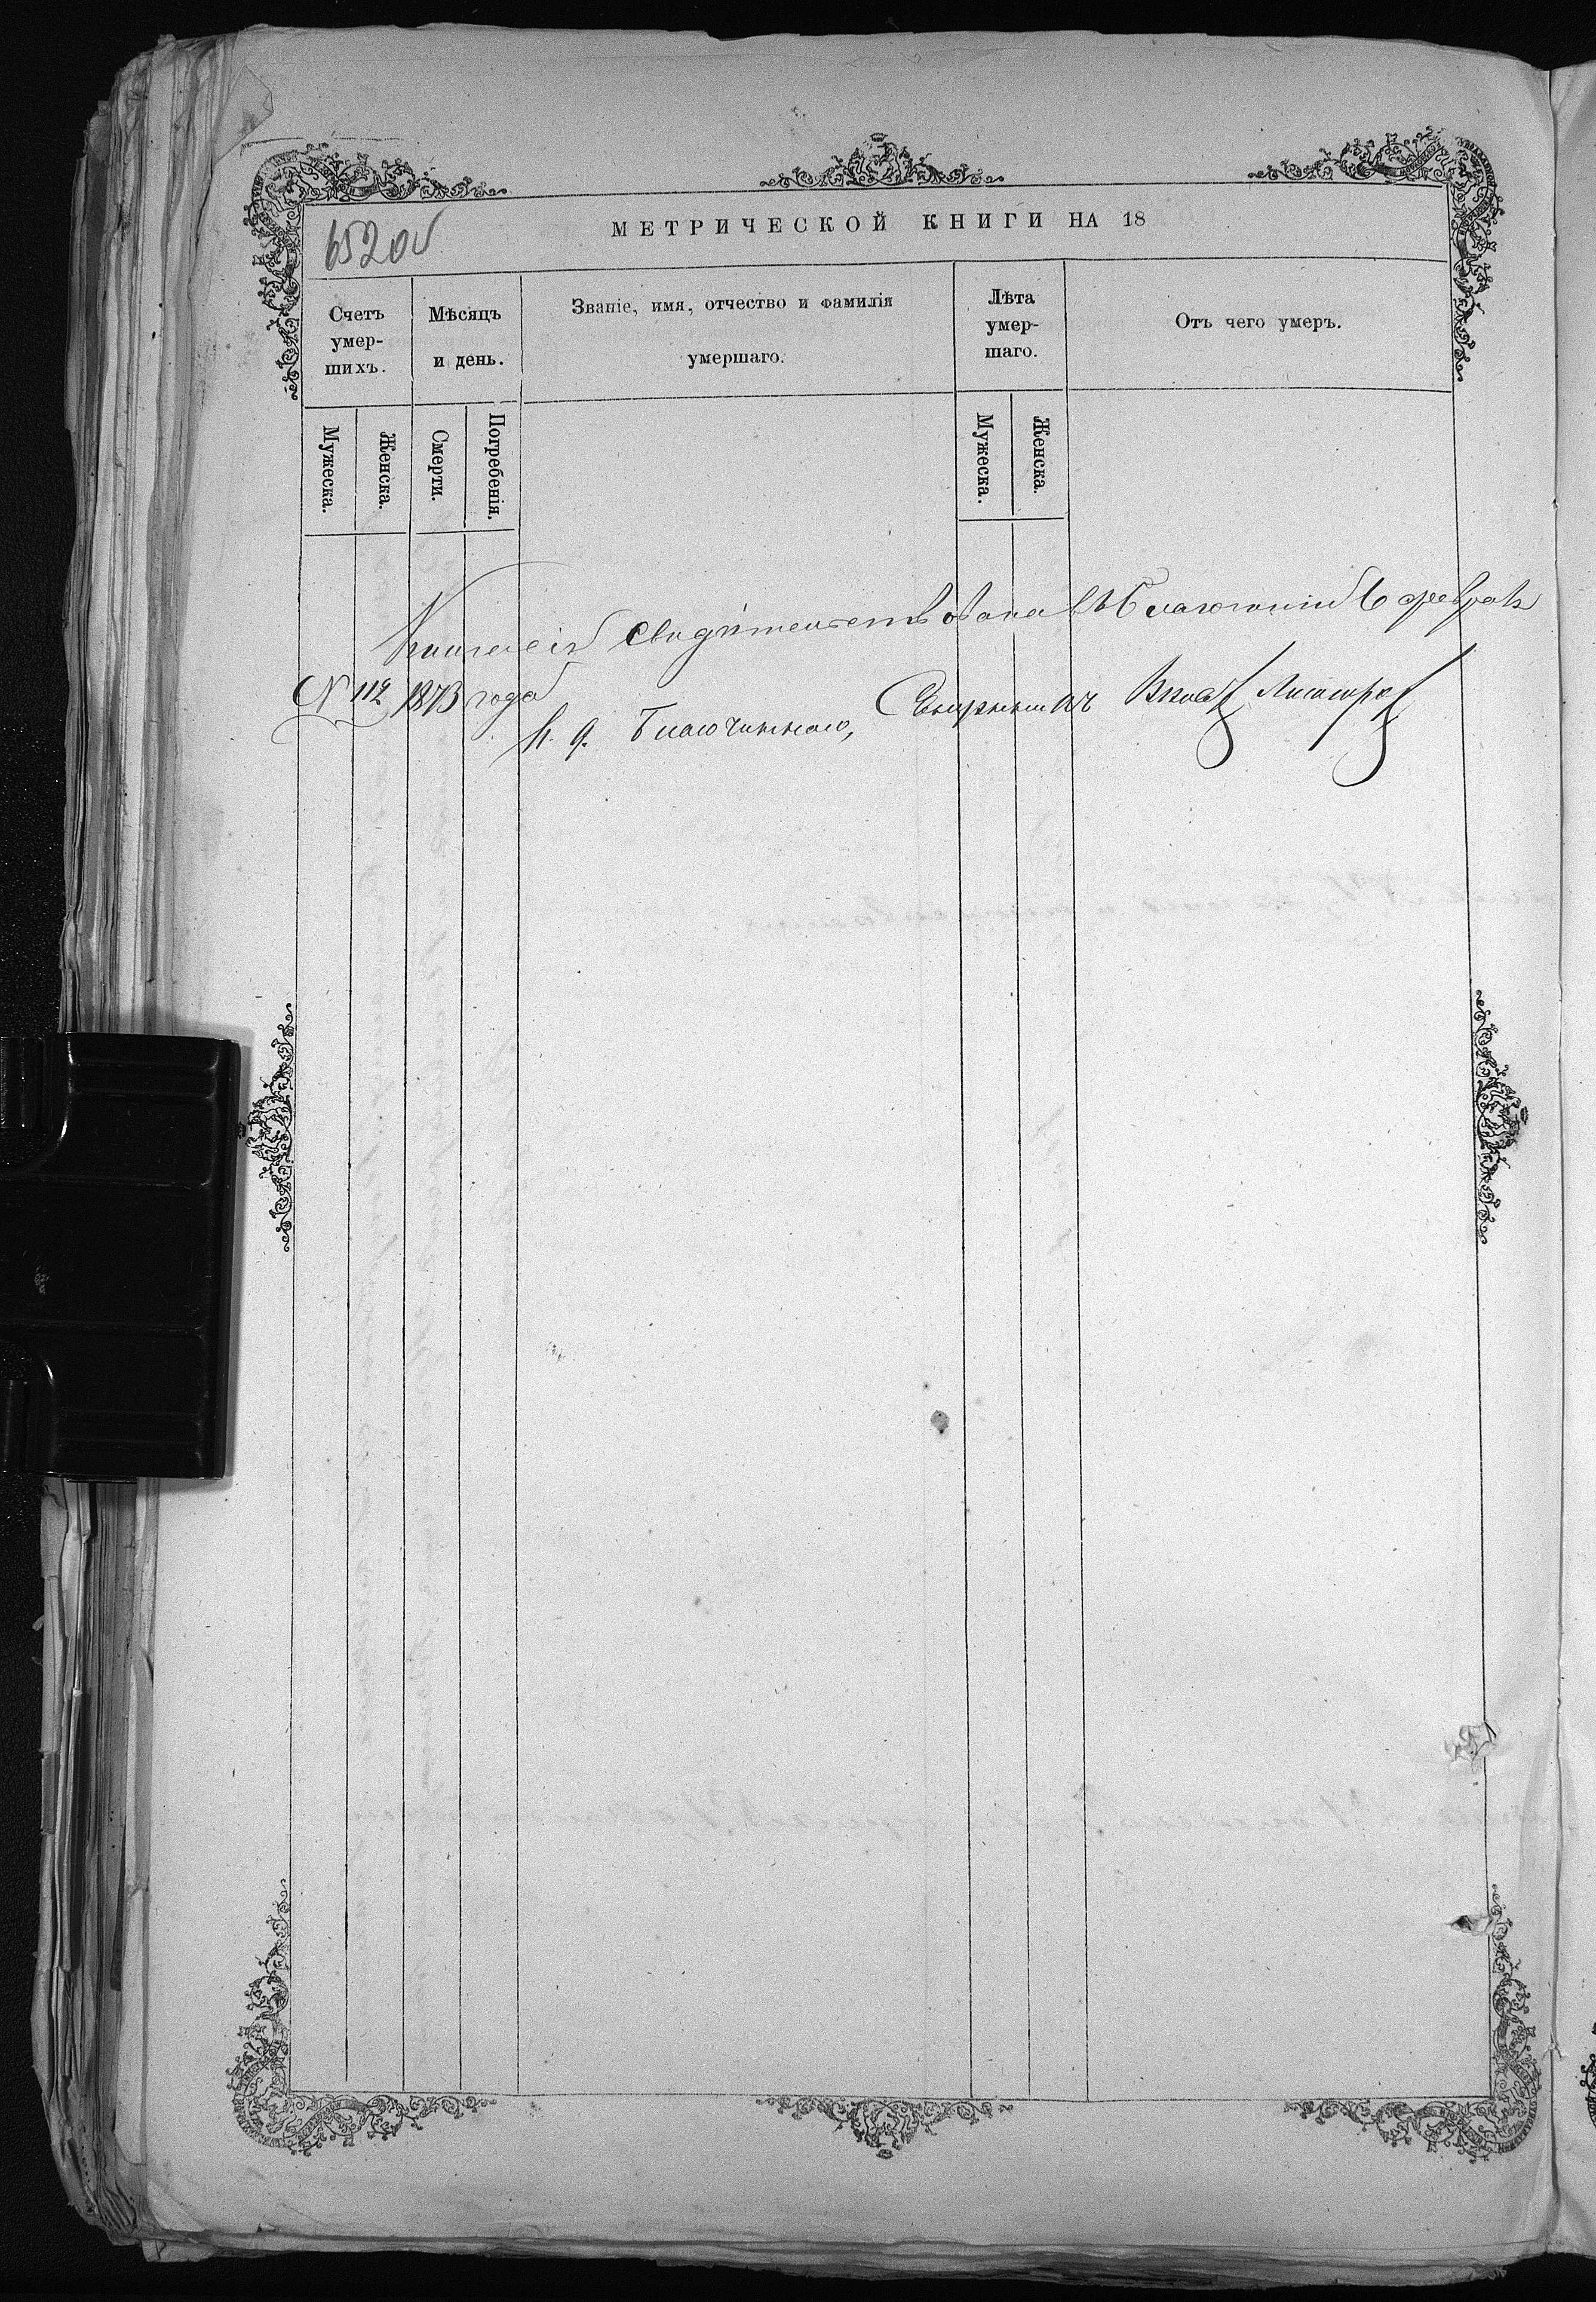 652об
МЕТРИЧЕСКОЙ КНИГИ НА 18
Счетъ умер-шихъ.
Мѣсяцъ и день.
Званіе, имя, отчество и фамилія умершаго.
Лѣта умер-шаго.
Отъ чего умеръ.
Мужеска.
Женска.
Смерти.
Погребенія.
Мужеска.
Женска.
Книга сія свидѣтельствована въ Благочиніи 6 февраля
№ 112 1873 года
И. д. Благочиннаго, Священникъ